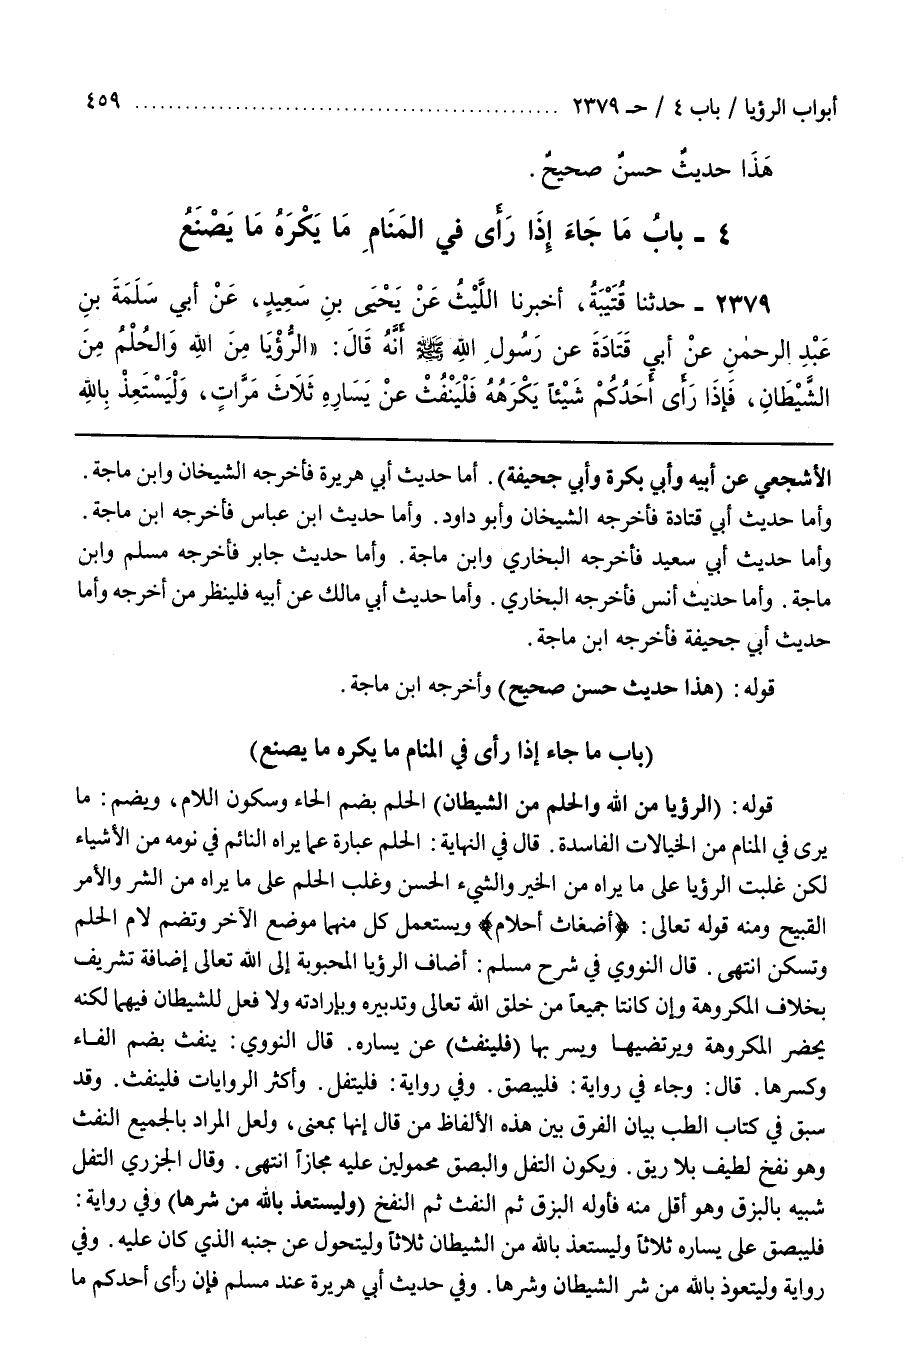 أبواب الرؤيا / باب ٤ / حـ ٢٣٧٩ .................................................. ٤٥٩
هَذَا حديثٌ حسنٌ صحيحٌ .
٤ ـ بابُ مَا جَاءَ إِذَا رَأَى في المَنَامِ مَا يَكْرَهُ مَا يَصْنَعُ
٢٣٧٩ ـ حدثنا قُتَيْبَةُ، أخبرنا اللَّيْثُ عَنْ يَحْيَى بنِ سَعِيدٍ، عَنْ أبي سَلَمَةَ بنِ
عَبْدِ الرحمٰنِ عنْ أبي قَتَادَةَ عن رَسُولِ اللهِ ﷺ أَنَّهُ قَالَ: «الرُّؤْيَا مِنَ اللهِ وَالحُلْمُ مِنَ
الشَّيْطَانِ، فَإِذَا رَأَى أَحَدُكُمْ شَيْئاً يَكْرَهُهُ فَلْيَنْفُثْ عنْ يَسَارِهِ ثَلَاثَ مَرَّاتٍ، وَلْيَسْتَعِذْ بِاللهِ
الأشجعي عن أبيه وأبي بكرة وأبي جحيفة). أما حديث أبي هريرة فأخرجه الشيخان وابن ماجة .
وأما حديث أبي قتادة فأخرجه الشيخان وأبو داود. وأما حديث ابن عباس فأخرجه ابن ماجة .
وأما حديث أبي سعيد فأخرجه البخاري وابن ماجة. وأما حديث جابر فأخرجه مسلم وابن
ماجة . وأما حديث أنس فأخرجه البخاري . وأما حديث أبي مالك عن أبيه فلينظر من أخرجه وأما
حديث أبي جحيفة فأخرجه ابن ماجة .
قوله: (هذا حديث حسن صحيح) وأخرجه ابن ماجة .
(باب ما جاء إذا رأى في المنام ما يكره ما يصنع)
قوله: (الرؤيا من الله والحلم من الشيطان) الحلم بضم الحاء وسكون اللام، ويضم: ما
يرى في المنام من الخيالات الفاسدة. قال في النهاية: الحلم عبارة عما يراه النائم في نومه من الأشياء
لكن غلبت الرؤيا على ما يراه من الخير والشيء الحسن وغلب الحلم على ما يراه من الشر والأمر
القبيح ومنه قوله تعالى: ﴿أضغاث أحلام﴾ ويستعمل كل منهما موضع الآخر وتضم لام الحلم
وتسكن انتهى. قال النووي في شرح مسلم: أضاف الرؤيا المحبوبة إلى الله تعالى إضافة تشريف
بخلاف المكروهة وإن كانتا جميعاً من خلق الله تعالى وتدبيره وبإرادته ولا فعل للشيطان فيهما لكنه
يحضر المكروهة ويرتضيها ويسر بها (فلينفث) عن يساره. قال النووي: ينفث بضم الفاء
وكسرها. قال: وجاء في رواية: فليبصق. وفي رواية: فليتفل. وأكثر الروايات فلينفث. وقد
سبق في كتاب الطب بيان الفرق بين هذه الألفاظ من قال إنها بمعنى، ولعل المراد بالجميع النفث
وهو نفخ لطيف بلا ريق. ويكون التفل والبصق محمولين عليه مجازاً انتهى. وقال الجزري التفل
شبيه بالبزق وهو أقل منه فأوله البزق ثم النفث ثم النفخ (وليستعذ بالله من شرها) وفي رواية:
فليبصق على يساره ثلاثاً وليستعذ بالله من الشيطان ثلاثاً وليتحول عن جنبه الذي كان عليه. وفي
رواية وليتعوذ بالله من شر الشيطان وشرها. وفي حديث أبي هريرة عند مسلم فإن رأى أحدكم ما